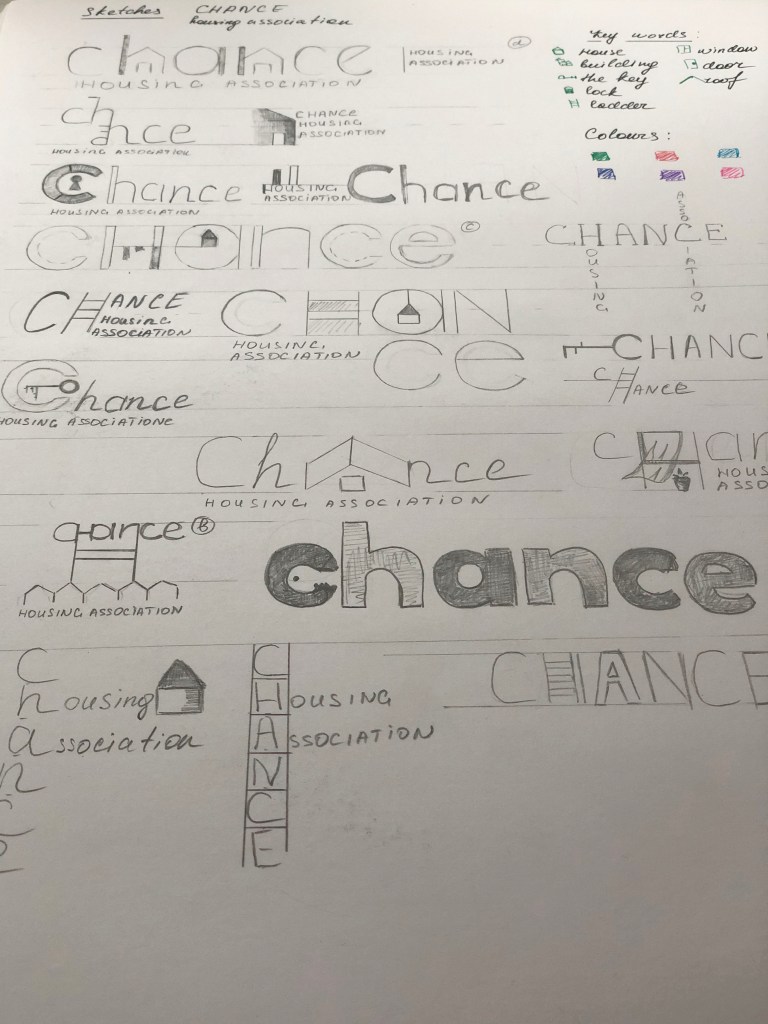 Sketches CHANCE
housing association
chance
HOUSING ASSOCIATION
HOUSING
ASSOCIATION
a
Key words:
House
building
the key
lock
ladder
window
door
roof
Colours:
chance
HOUSING ASSOCIATION
CHANCE
HOUSING
ASSOCIATION
Chance
HOUSING ASSOCIATION
HOUSING
ASSOCIATION
Chance
cHance
C
CHANCE
HOUSING
ASSOCIATION
CHANCE
HOUSING
ASSOCIATION
CHAN
ce
HOUSING
ASSOCIATION
CHANC
CHance
Chance
HOUSING ASSOCIATIONE
ChAnce
HOUSING ASSOCIATION
CHan
HOUS
ASSO
chance
B
HOUSING ASSOCIATION
chance
C
housing
association
n
CHANCE
HOUSING
ASSOCIATION
CHANCE